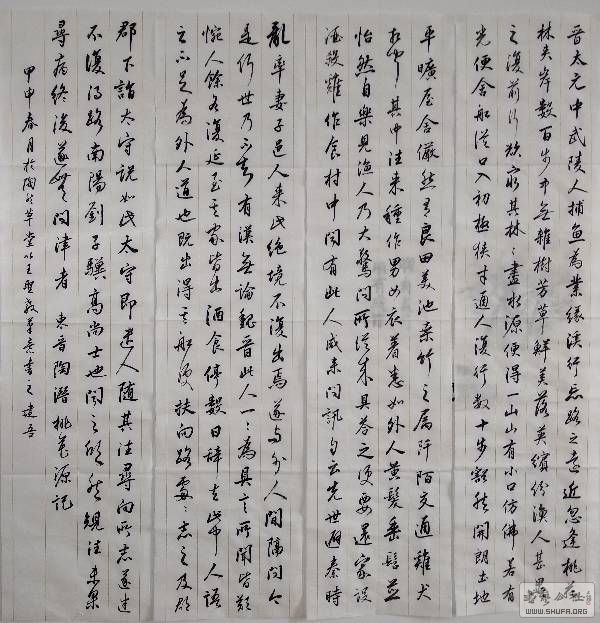 晋太元中武陵人捕鱼為業缘溪行忘路之遠近忽逢桃花
林夹岸数百步中無雜樹芳草鲜美落英缤纷渔人甚異
之復前行欲穷其林〻盡水源便得一山山有小口仿佛若有
光便舍船從口入初極狭才通人復行数十步豁然開朗土地
平曠屋舍儼然有良田美池桑竹之属阡陌交通雞犬
相聞其中往来種作男女衣着悉如外人黄髮垂髫並
怡然自樂見渔人乃大驚問所從来具答之便要還家設
酒殺雞作食村中聞有此人咸来問訊自云先世避秦時
亂率妻子邑人来此绝境不復出焉遂与外人間隔問今
是何世乃不知有漢無論魏晋此人一〻為具言所聞皆歎
惋人餘各復延至其家皆出酒食停数日辞去此中人語
之不足為外人道也既出得其船便扶向路處〻志之及郡
郡下詣太守説如此太守即遣人随其往尋向所志遂迷
不復得路南陽劉子驥高尚士也聞之欣然規往未果
尋病終後遂無問津者 東晋陶潜桃花源記
甲申春月於陶然草堂以王聖教筆意書之建吾
WWW.SHUFA.ORG